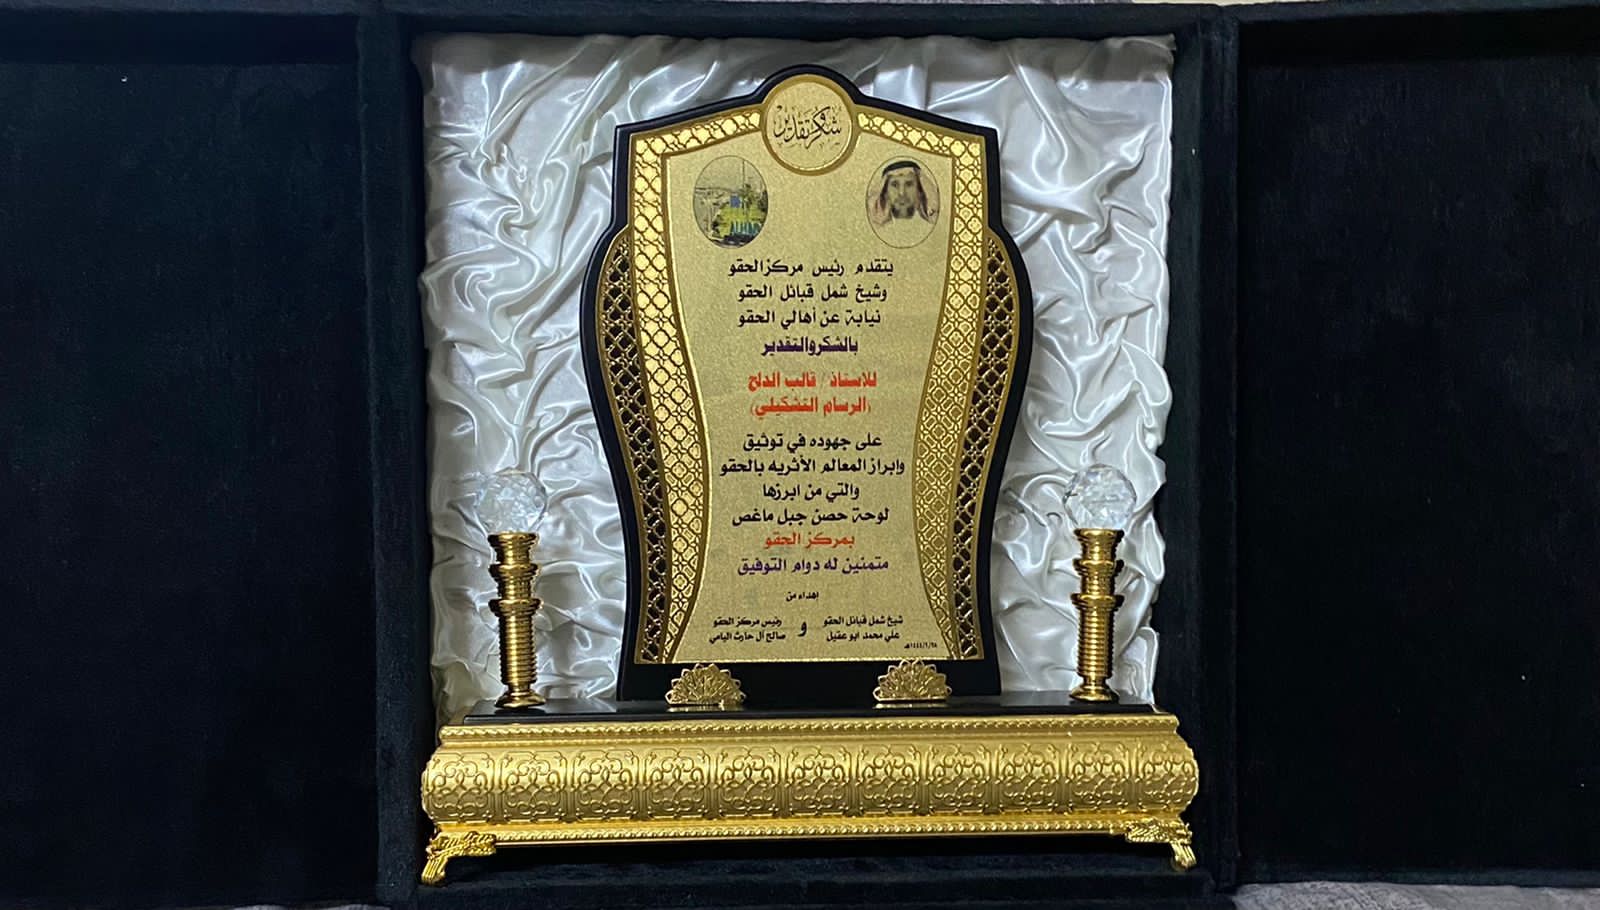 شكر وتقدير
ALHAQ
يتقدم رئيس مركز الحقو
وشيخ شمل قبائل الحقو
نيابة عن أهالي الحقو
بالشكر والتقدير
للاستاذ / قالب الدلح
(الرسام التشكيلي)
على جهوده في توثيق
وابراز المعالم الأثريه بالحقو
والتي من ابرزها
لوحة حصن جبل ماغص
بمركز الحقو
متمنين له دوام التوفيق
إهداء من
شيخ شمل قبائل الحقو
علي محمد ابو عقيل
و
رئيس مركز الحقو
صالح آل حارث اليامي